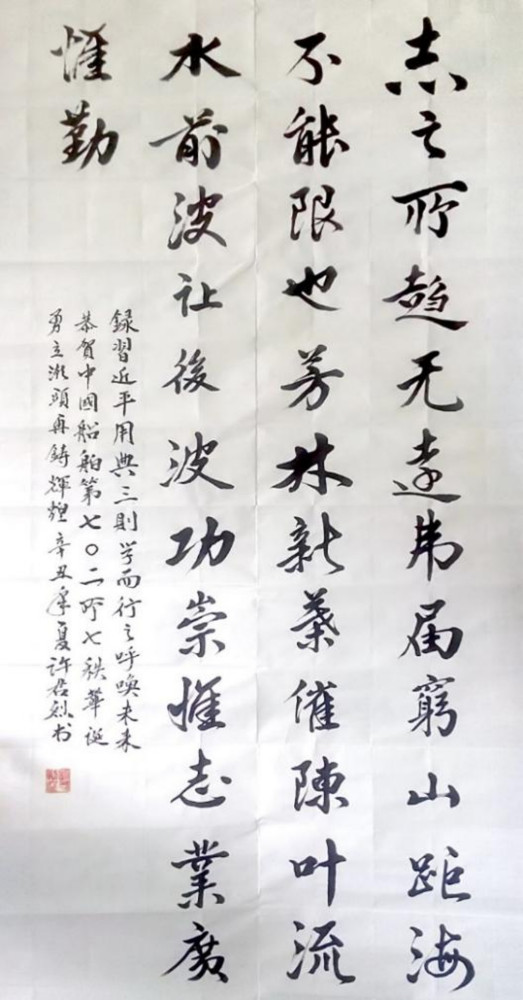 志之所趋无遠弗届窮山距海
不能限也芳林新葉催陳叶流
水前波让後波功崇惟志業廣
惟勤
録習近平用典三則学而行之呼喚未来
恭贺中國船舶第七〇二所七秩華诞
勇立潮頭再鋳輝煌辛丑年夏许君烈书